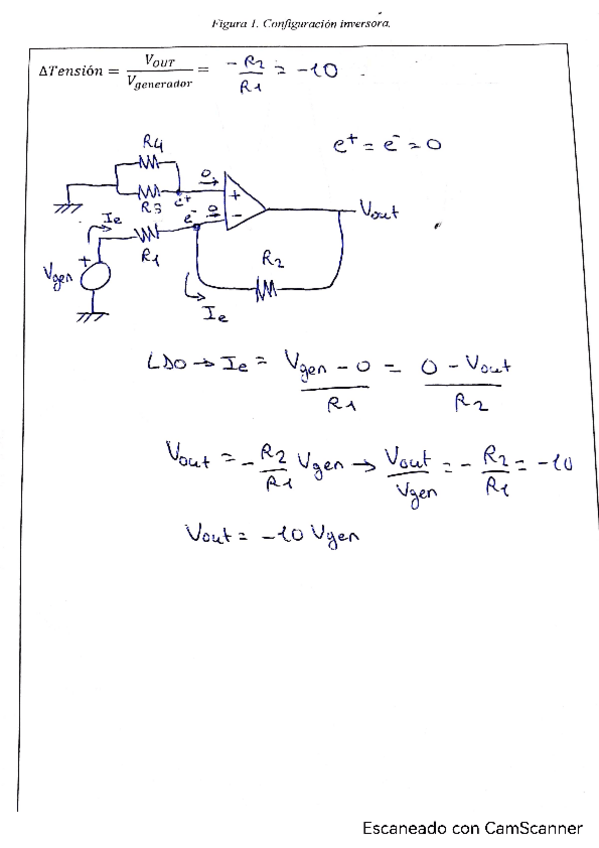 Figura 1. Configuración inversora.
ΔTensión = V_OUT / V_generador = -R2/R1 = -10
R4
e+ = e- = 0
R3 e+ 0 +
e- 0 -
Vout
Ie
R1
R2
Vgen +
Ie
LDO → Ie = (Vgen - 0)/R1 = (0 - Vout)/R2
Vout = -R2/R1 Vgen → Vout/Vgen = -R2/R1 = -10
Vout = -10 Vgen
Escaneado con CamScanner